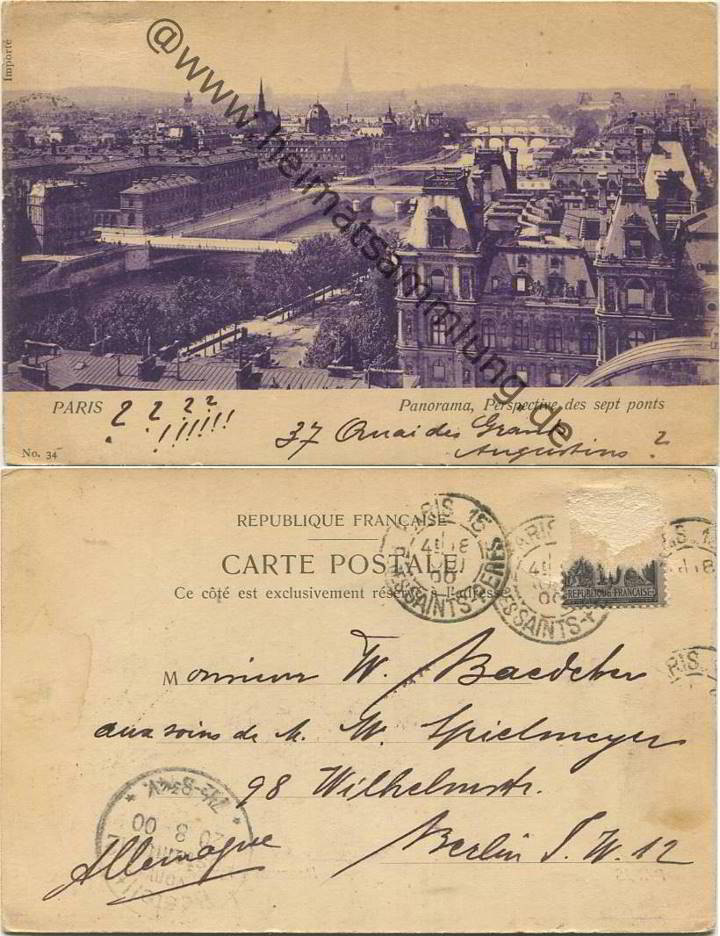 Importé
@www.heimatsammlung.de
PARIS ? ? ? ? !!!!!!
Panorama, Perspective des sept ponts
No. 34
37 Quai des Grands
Augustins ?
REPUBLIQUE FRANÇAISE
CARTE POSTALE
Ce côté est exclusivement réservé à l'adresse
PARIS 15
R. DES SAINTS-PERES
REPUBLIQUE FRANÇAISE
Monsieur W. Baedeker
aux soins de M. W. Spielmeyer
98 Wilhelmstr.
Berlin S. W. 12
Allemagne